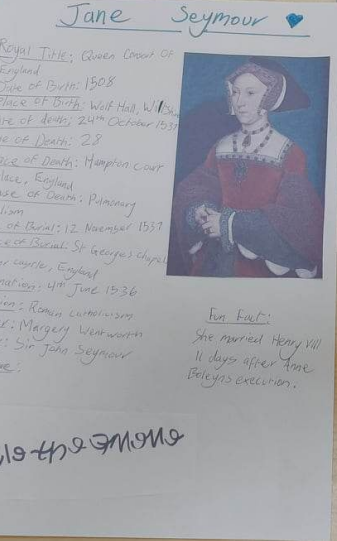 Jane Seymour
Royal Title: Queen Consort Of
England
of Birth: 1508
Place of Birth: Wolf Hall, Wiltshire
of death: 24th October 1537
of Death: 28
of Death: Hampton Court
England
of Death: Pulmonary
of Burial: 12 November 1537
of Burial: St George's Chapel
castle, England
4th June 1536
Roman Catholicism
Margery Wentworth
Sir John Seymour
Fun Fact:
She married Henry VIII
11 days after Anne
Boleyn's execution.